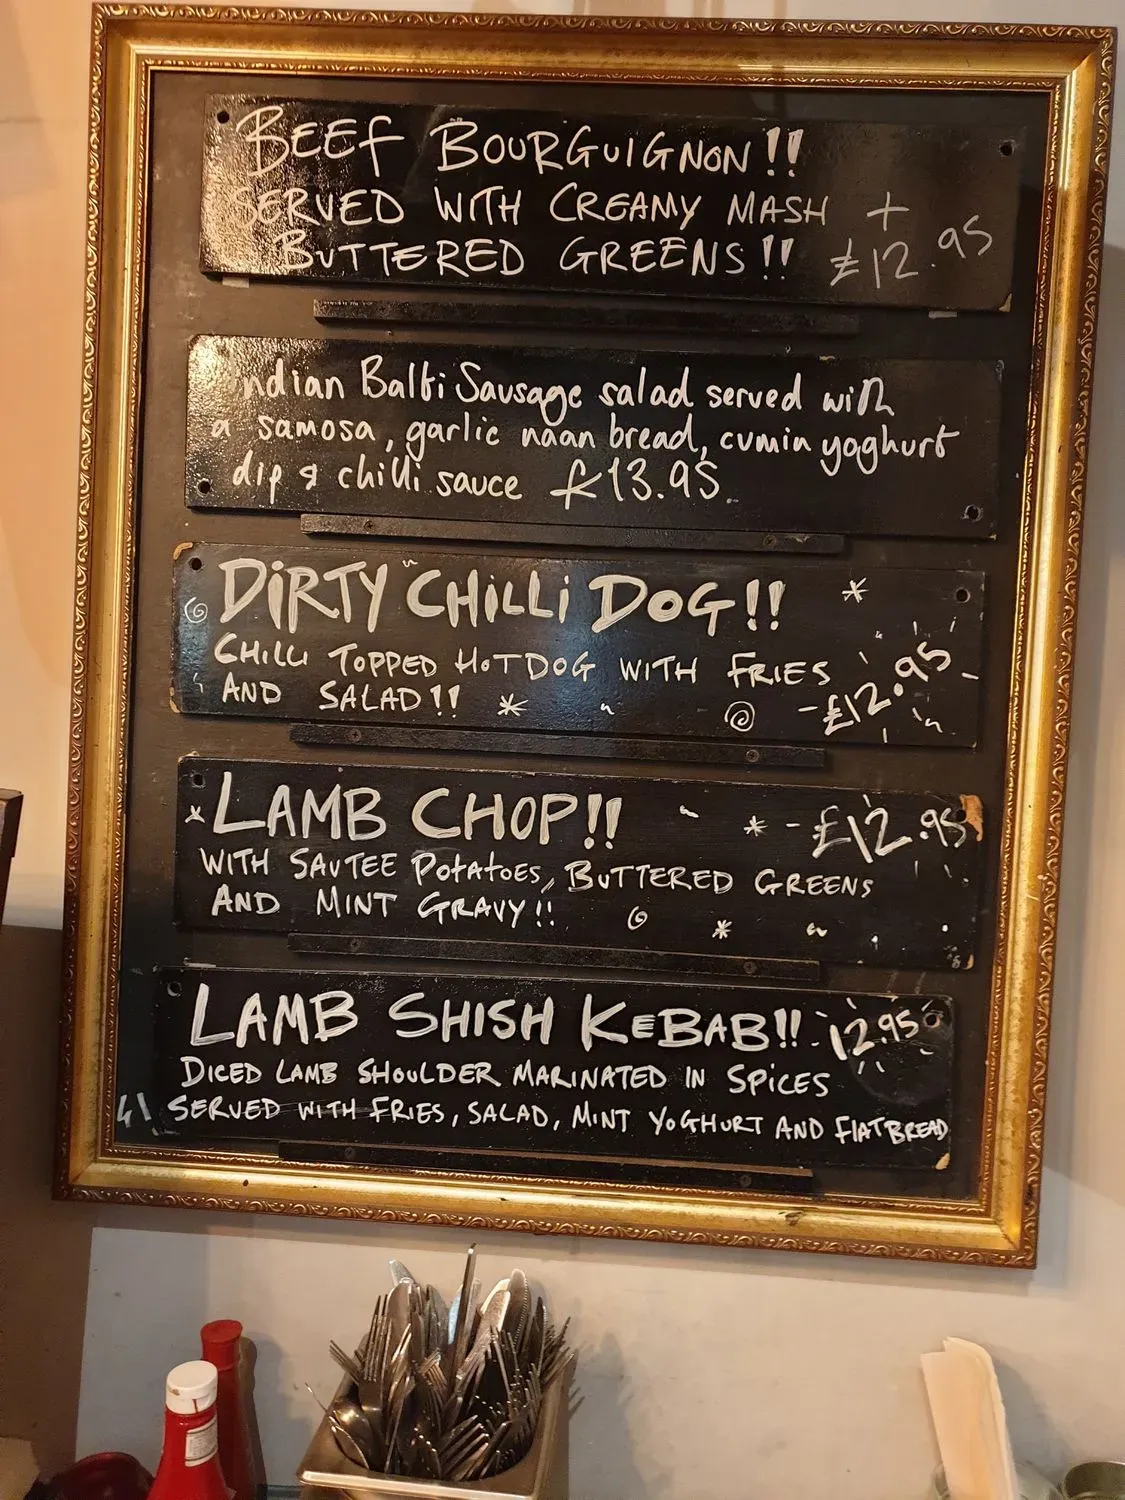 BEEF BOURGUIGNON!!
SERVED WITH CREAMY MASH +
BUTTERED GREENS!! £12.95
Indian Balti Sausage salad served with
a samosa, garlic naan bread, cumin yoghurt
dip & chilli sauce £13.95
DIRTY CHILLI DOG!!
CHILLI TOPPED HOTDOG WITH FRIES
AND SALAD!! -£12.95
LAMB CHOP!! -£12.95
WITH SAUTEE POTATOES, BUTTERED GREENS
AND MINT GRAVY!!
LAMB SHISH KEBAB!! -12.95
DICED LAMB SHOULDER MARINATED IN SPICES
SERVED WITH FRIES, SALAD, MINT YOGHURT AND FLATBREAD